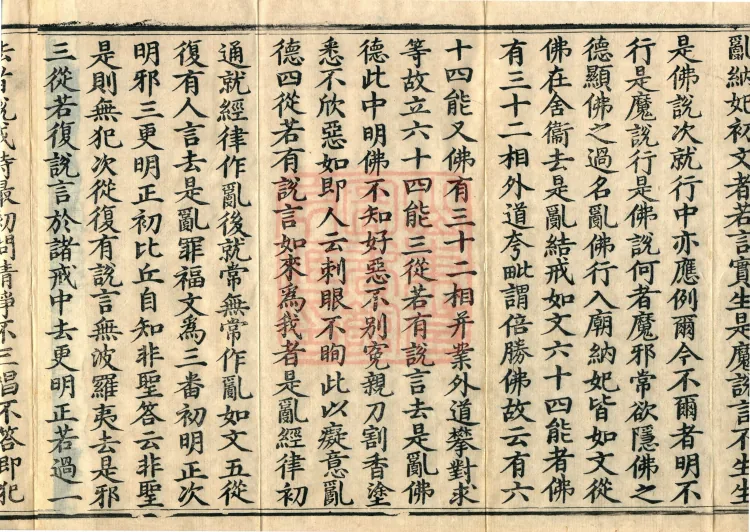 亂納妃初文者若言實生是魔說言不生生
是佛說次就行中亦應例爾今不爾者明不
行是魔說行是佛說何者魔邪常欲隱佛之
德顯佛之過名亂佛行入廟納妃皆如文從
佛在舍衞去是亂結戒如文六十四能者佛
有三十二相外道夸毗謂倍勝佛故云有六
十四能又佛有三十二相并業外道攀對求
等故立六十四能三從若有說言去是亂佛
德此中明佛不知好惡不別寃親刀割香塗
悉不欣惡如即人云刺眼不眴此以癡意亂
德四從若有說言如來為我者是亂經律初
通就經律作亂後就常無常作亂如文五從
復有人言去是亂罪福文為三番初明正次
明邪三更明正初比丘自知非聖答云非聖
是則無犯次從復有說言無波羅夷去是邪
三從若復說言於諸戒中去更明正若過一
去者說戒時最初問清淨不三唱不答即犯